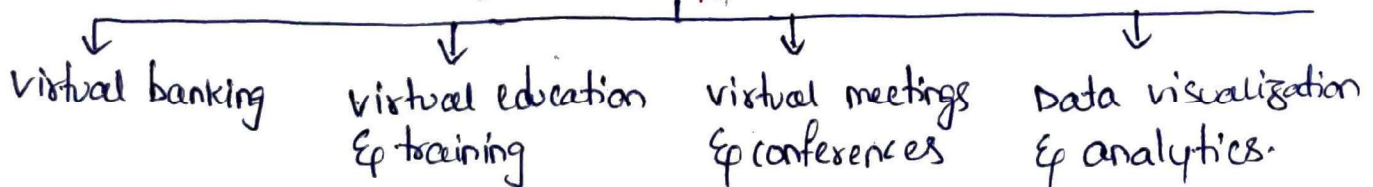 Virtual banking
virtual education
& training
virtual meetings
& conferences
Data visualization
& analytics.